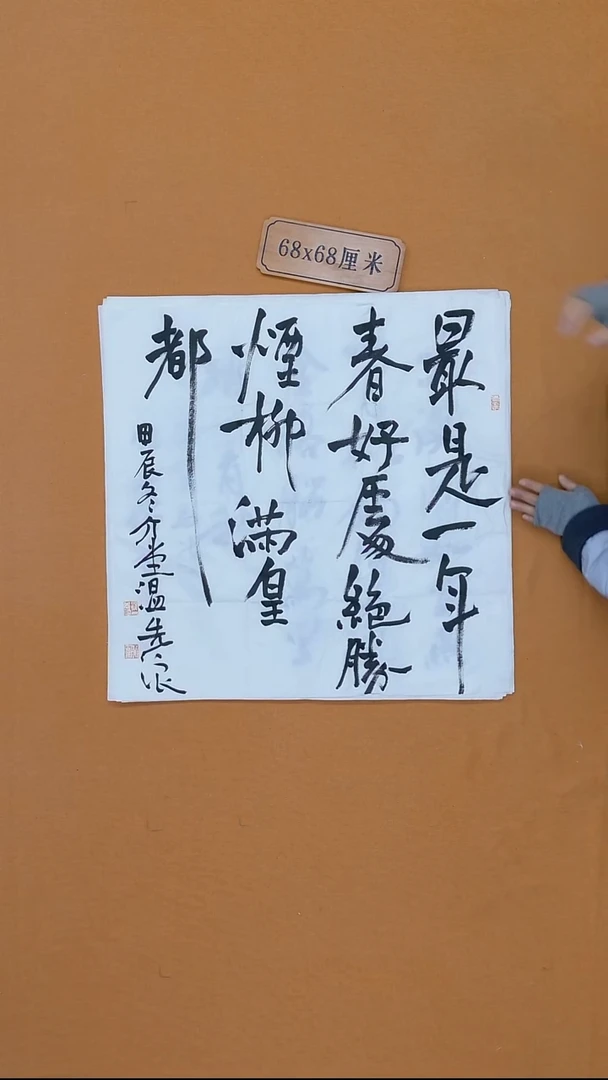 68x68厘米
最是一年
春好處絕勝
煙柳滿皇
都
甲辰冬介堂溫先